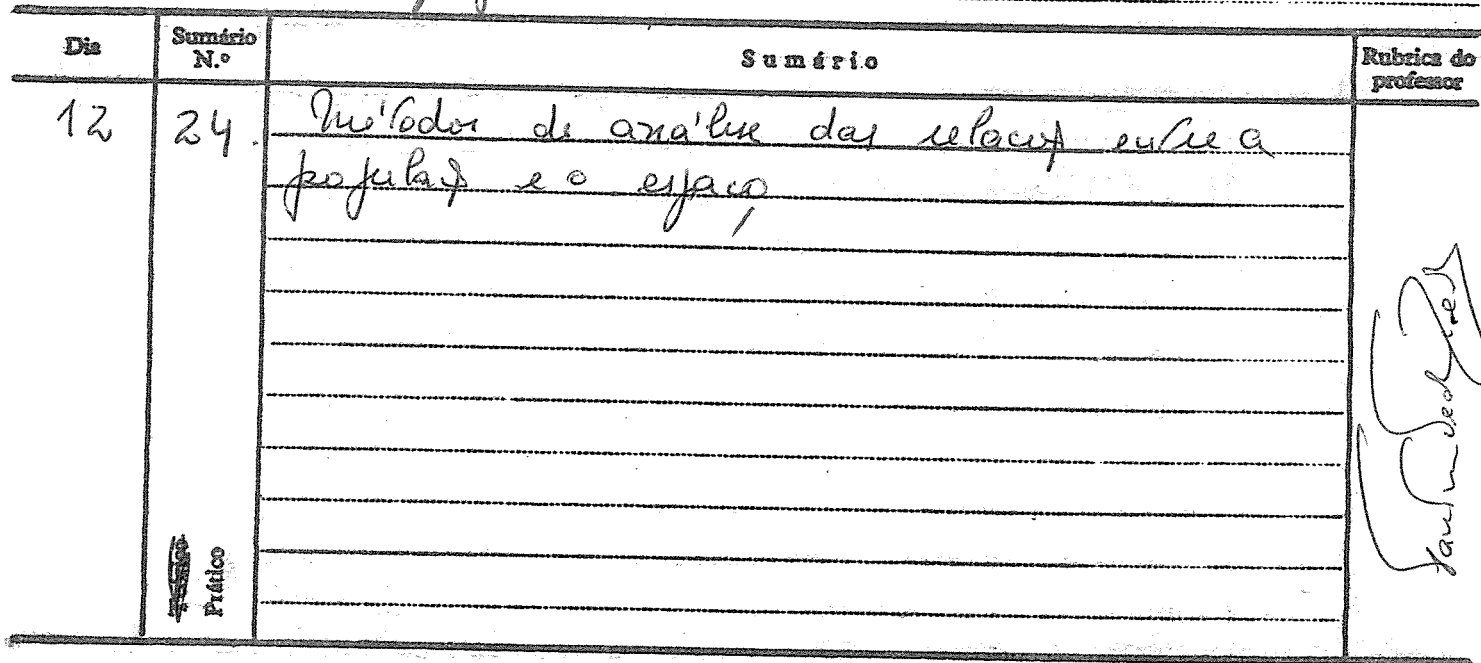 Dia
Sumário N.º
Sumário
Rubrica do professor
12
24.
Métodos de análise das relações entre a
população e o espaço
Prático